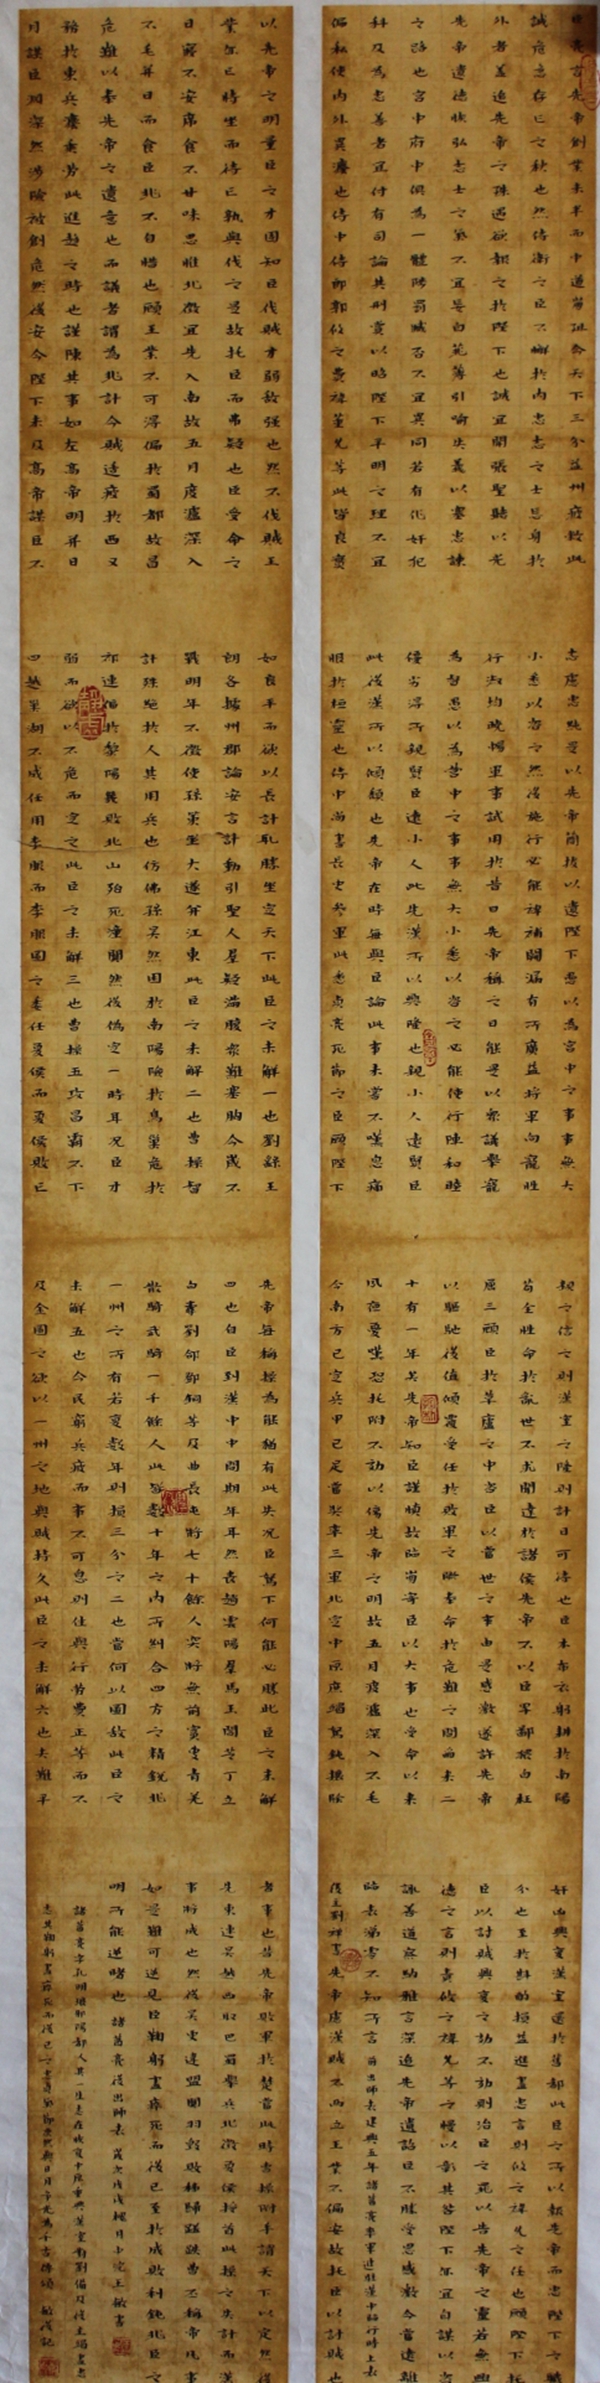 臣亮言先帝創業未半而中道崩殂今天下三分益州疲敝此
誠危急存亡之秋也然侍衛之臣不懈於內忠志之士忘身於
外者蓋追先帝之殊遇欲報之於陛下也誠宜開張聖聽以光
先帝遺德恢弘志士之氣不宜妄自菲薄引喻失義以塞忠諫
之路也宮中府中俱為一體陟罰臧否不宜異同若有作奸犯
科及為忠善者宜付有司論其刑賞以昭陛下平明之理不宜
偏私使內外異灋也侍中侍郎郭攸之費禕董允等此皆良實
志慮忠純是以先帝簡拔以遺陛下愚以為宮中之事事無大
小悉以咨之然後施行必能裨補闕漏有所廣益將軍向寵性
行淑均曉暢軍事試用於昔日先帝稱之曰能是以眾議舉寵
為督愚以為營中之事事無大小悉以咨之必能使行陳和睦
優劣得所親賢臣遠小人此先漢所以興隆也親小人遠賢臣
此後漢所以傾頹也先帝在時每與臣論此事未嘗不嘆息痛
恨於桓靈也侍中尚書長史參軍此悉貞亮死節之臣願陛下
親之信之則漢室之隆則計日可待也臣本布衣躬耕於南陽
苟全性命於亂世不求聞達於諸侯先帝不以臣卑鄙猥自枉
屈三顧臣於草廬之中咨臣以當世之事由是感激遂許先帝
以驅馳後值傾覆受任於敗軍之際奉命於危難之間爾來二
十有一年矣先帝知臣謹慎故臨崩寄臣以大事也受命以來
夙夜憂嘆恐托附不効以傷先帝之明故五月渡瀘深入不毛
今南方已定兵甲已足當獎率三軍北定中原庶竭駑鈍攘除
奸凶興復漢室還於舊都此臣之所以報先帝而忠陛下之職
分也至於斟酌損益進盡忠言則攸之禕允之任也願陛下托
臣以討賊興復之効不効則治臣之罪以告先帝之靈若無興
德之言則責攸之禕允等之慢以彰其咎陛下亦宜自謀以咨
諏善道察納雅言深追先帝遺詔臣不勝受恩感激今當遠離
臨表涕零不知所言 前出師表建興五年諸葛亮率軍進駐漢中臨行時上表
後主劉禪書 先帝慮漢賊不兩立王業不偏安故托臣以討賊也
以先帝之明量臣之才固知臣伐賊才弱敵強也然不伐賊王
業亦亡惟坐而待亡孰與伐之是故托臣而弗疑也臣受命之
日寢不安席食不甘味思惟北徵宜先入南故五月渡瀘深入
不毛并日而食臣非不自惜也顧王業不可得偏於蜀都故冒
危難以奉先帝之遺意也而議者謂為非計今賊適疲於西又
務於東兵灋乘勞此進趨之時也謹陳其事如左高帝明并日
月謀臣淵深然涉險被創危然後安今陛下未及高帝謀臣不
如良平而欲以長計取勝坐定天下此臣之未解一也劉繇王
朗各據州郡論安言計動引聖人群疑滿腹眾難塞胸今歲不
戰明年不徵使孫策坐大遂并江東此臣之未解二也曹操智
計殊絕於人其用兵也仿佛孫吳然困於南陽險於烏巢危於
祁連偪於黎陽幾敗北山殆死潼關然後偽定一時耳況臣才
弱而欲以不危而定之此臣之未解三也曹操五攻昌霸不下
四越巢湖不成任用李服而李服圖之委任夏侯而夏侯敗亡
先帝每稱操為能猶有此失況臣駑下何能必勝此臣之未解
四也自臣到漢中中間期年耳然喪趙雲陽群馬玉閻芝丁立
白壽劉郃鄧銅等及曲長屯將七十餘人突將無前賨叟青羌
散騎武騎一千餘人此皆數十年之內所糾合四方之精銳非
一州之所有若復數年則損三分之二也當何以圖敵此臣之
未解五也今民窮兵疲而事不可息則住與行勞費正等而不
及今圖之欲以一州之地與賊持久此臣之未解六也夫難平
者事也昔先帝敗軍於楚當此時曹操拊手謂天下以定然後
先東連吳越西取巴蜀舉兵北徵夏侯授首此操之失計而漢
事將成也然後吳更違盟關羽毀敗秭歸蹉跌曹丕稱帝凡事
如是難可逆見臣鞠躬盡瘁死而後已至於成敗利鈍非臣之
明所能逆睹也 諸葛亮後出師表